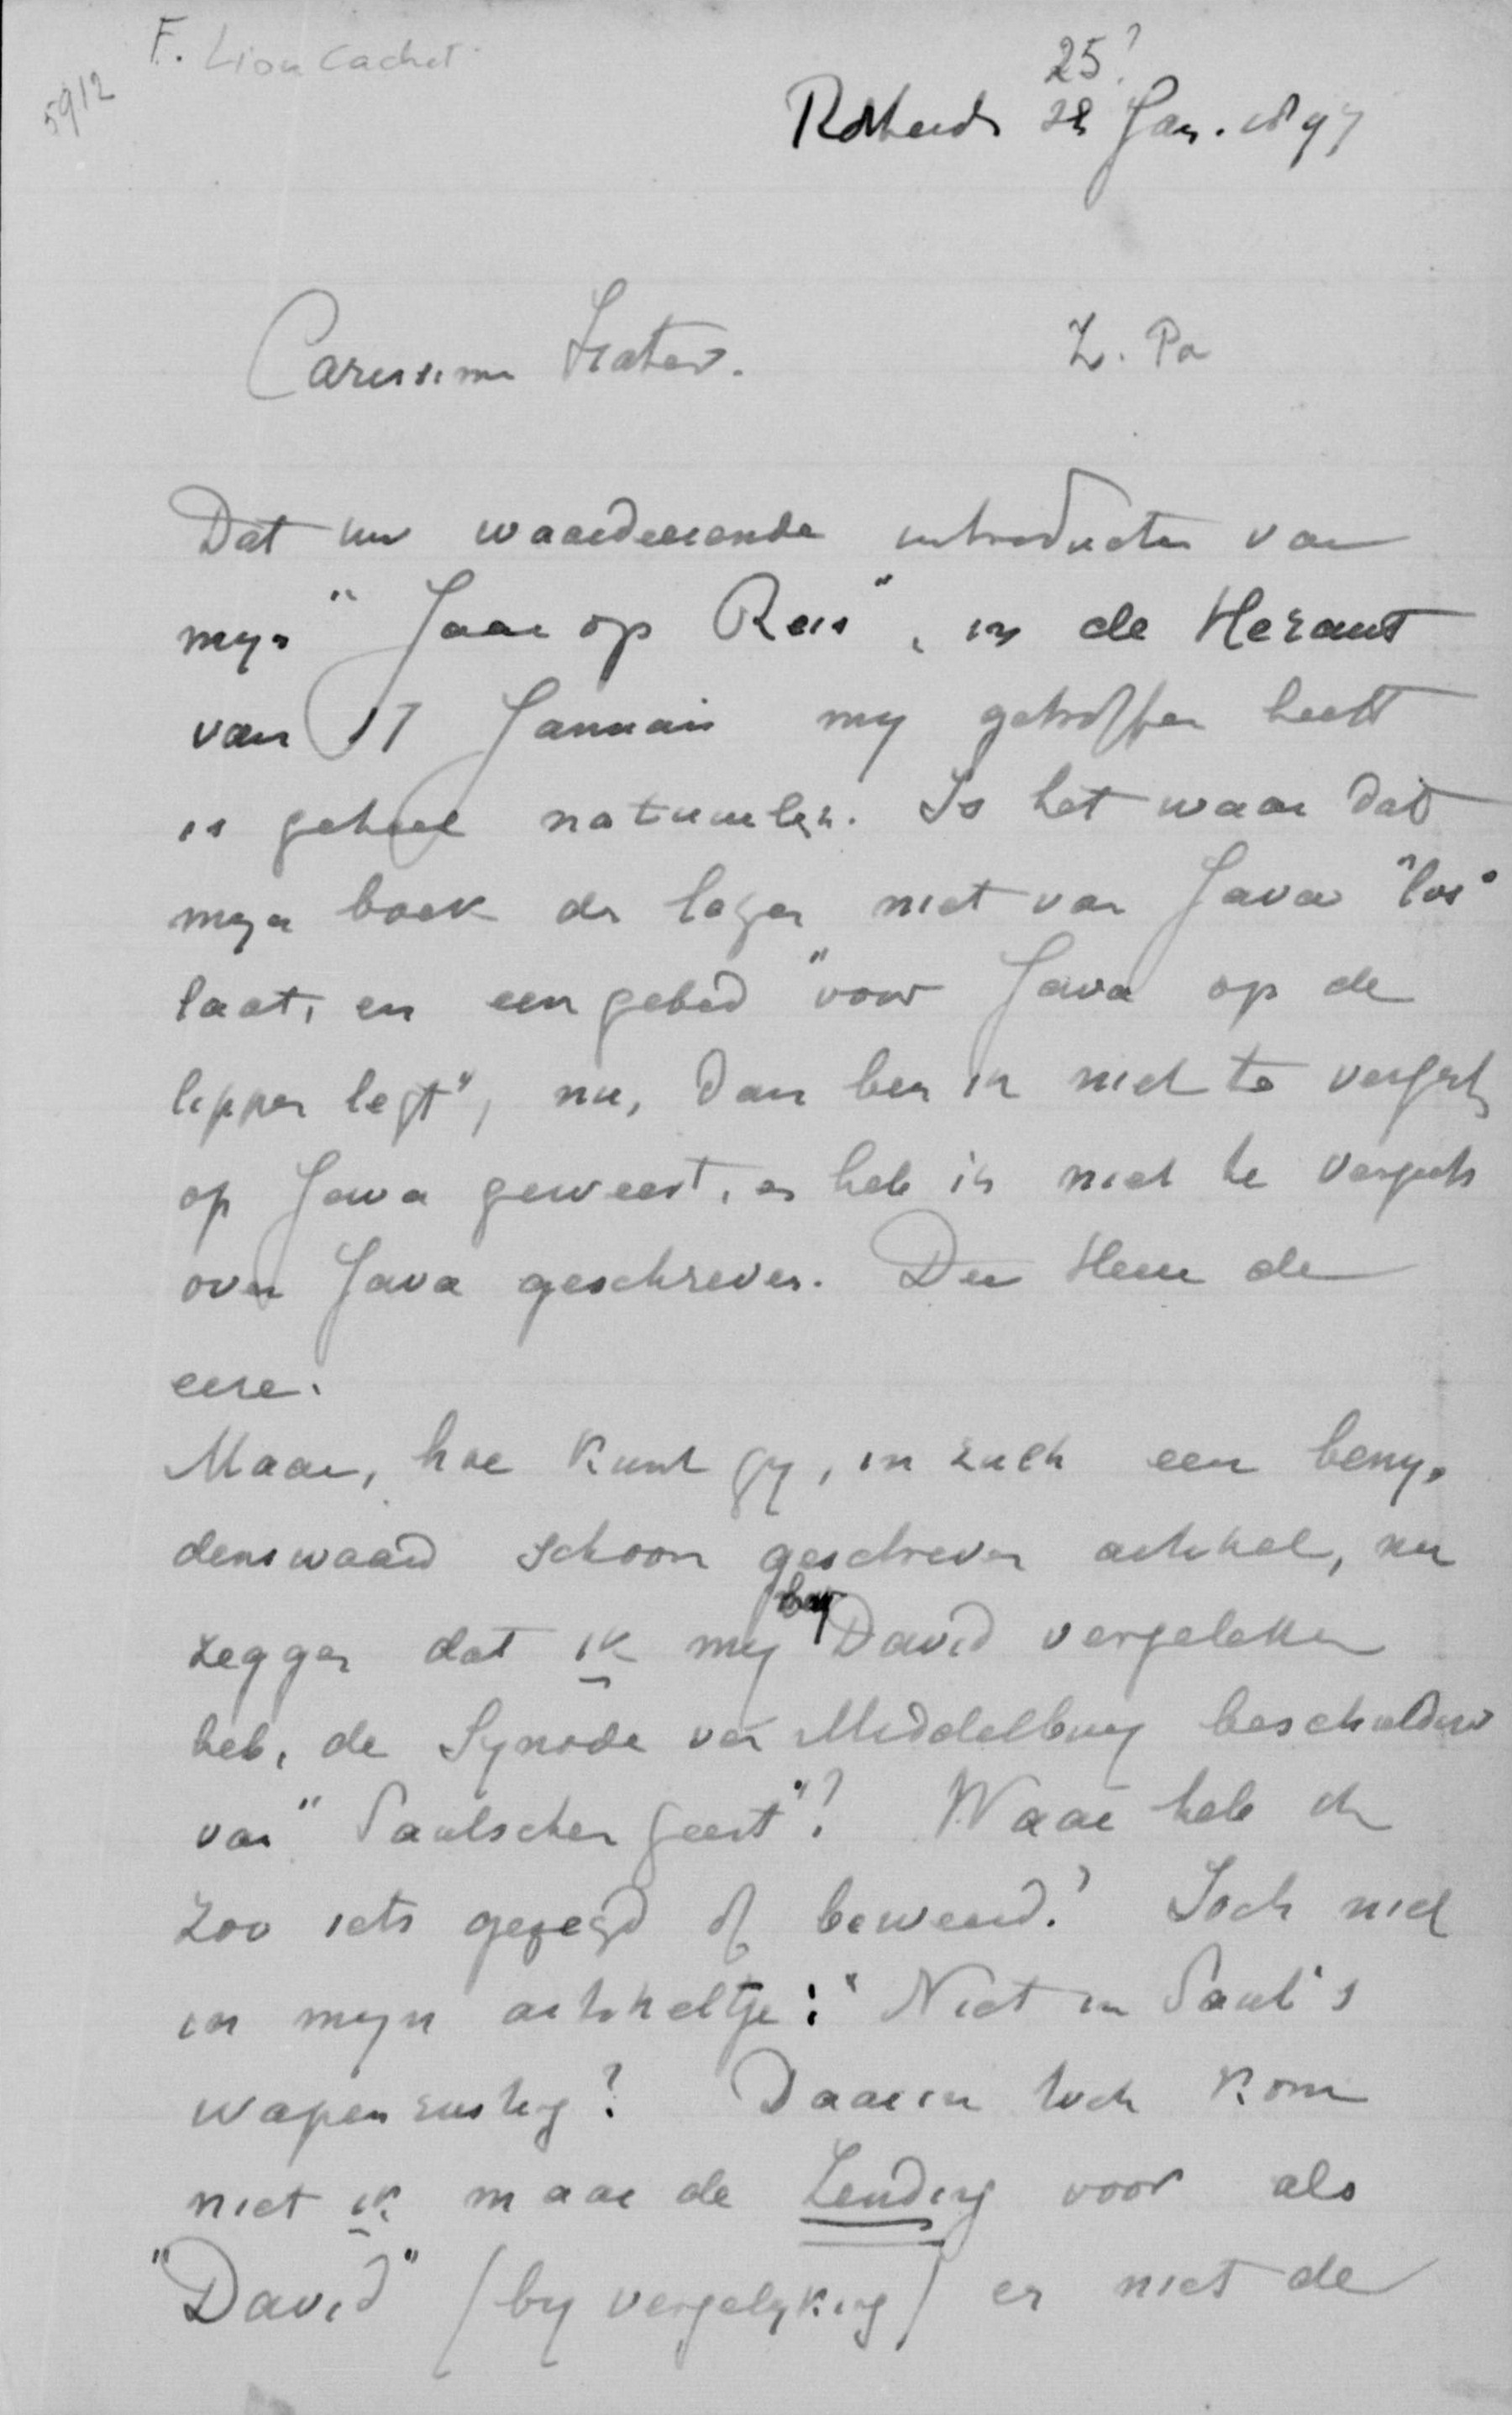 F. Lion Cachet.
5912
25?
Rotterd. 28 Jan. 1897
Carissime Frater.
Z. Pa
Dat uw waardeerende introductie van
mijn "Jaar op Reis", in de Heraut
van 17 Januari mij getroffen heeft
is geheel natuurlijk. Is het waar dat
mijn boek de lezer niet van Java "los"
laat, en een gebed "voor Java op de
lippen legt", nu, dan ben ik niet te vergeefs
op Java geweest, en heb ik niet te vergeefs
over Java geschreven. Den Heere de
eere.
Maar, hoe kunt gij, in zulk een benij-
denswaard schoon geschreven artikel, nu
zeggen dat ik mij bij David vergeleken
heb, de Synode van Middelburg beschuldigd
van "Saulschen geest"? Waar heb ik
zoo iets gezegd of beweerd? Toch niet
in mijn artikeltje: "Niet in Saul's
wapenrusting? Daarin toch kom
niet ik maar de Zending voor als
"David" (bij vergelijking) en niet de